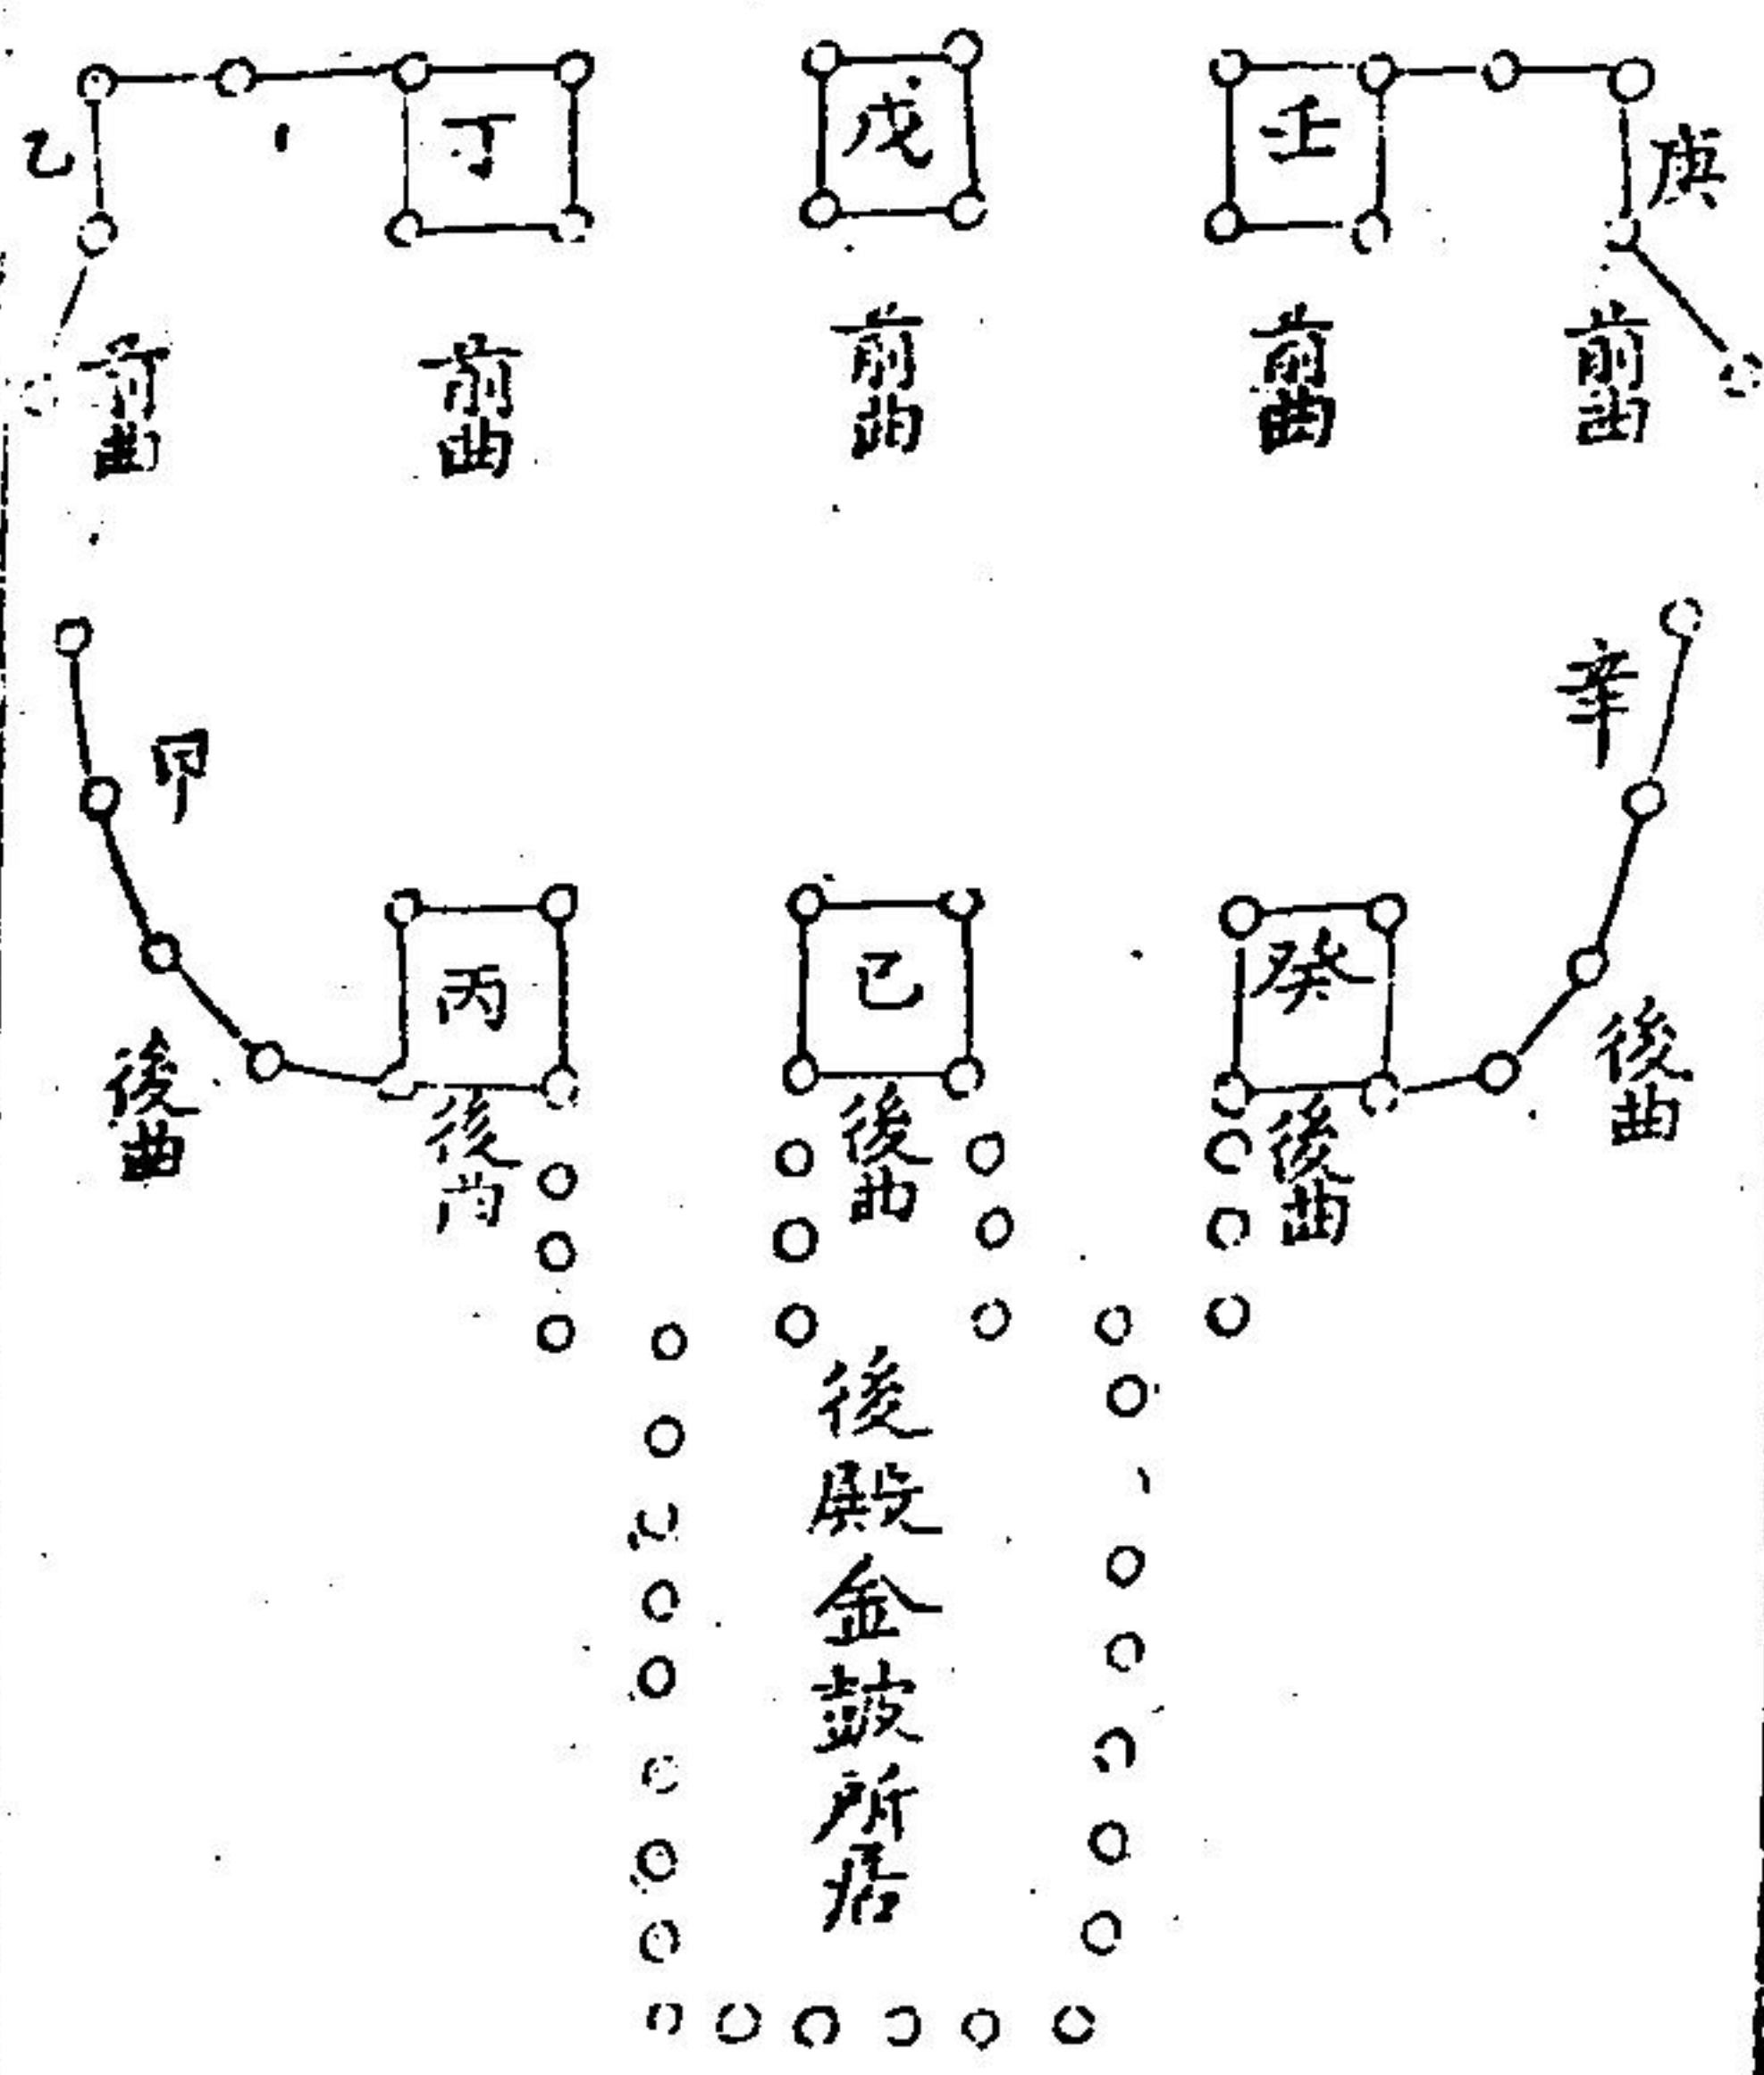 庚
壬
戊
丁
乙
前曲
前曲
前曲
前曲
前曲
辛
甲
癸
己
丙
後曲
後曲
後曲
後
後曲
後殿金鼓所居